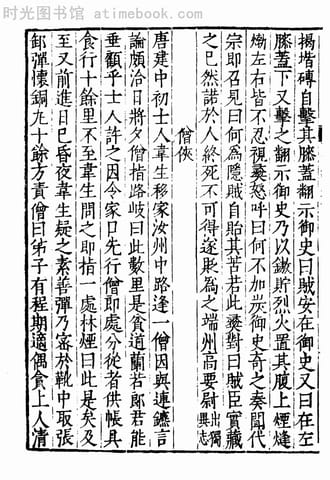 时光图书馆 · www.atimebook.com
揭堦磚自擊其膝蓋翻示御史曰賊安在御史又曰在左
膝蓋下又擊之翻示御史乃以鏾貯烈火置其腹上煙㷭
㷭左右皆不忍視蘷怒呼曰何不加炭御史奇之奏聞代
宗即召見曰何爲隱賊自貽其苦若此蘷對曰賊臣實藏
之巳然諾於人終死不可得遂貶爲之端州高要尉出獨異志
僧俠
唐建中初士人韋生移家汝州中路逢一僧因與連鑣言
論頗洽日將夕僧指路岐曰此數里是貧道蘭若郎君能
垂顧乎士人許之因令家口先行僧即處分從者供帳具
食行十餘里不至韋生問之即指一處林煙曰此是矣及
至又前進日巳昏夜韋生疑之素善彈乃密於靴中取張
卸彈懷銅丸十餘方責僧曰弟子有程期適偶貪上人清